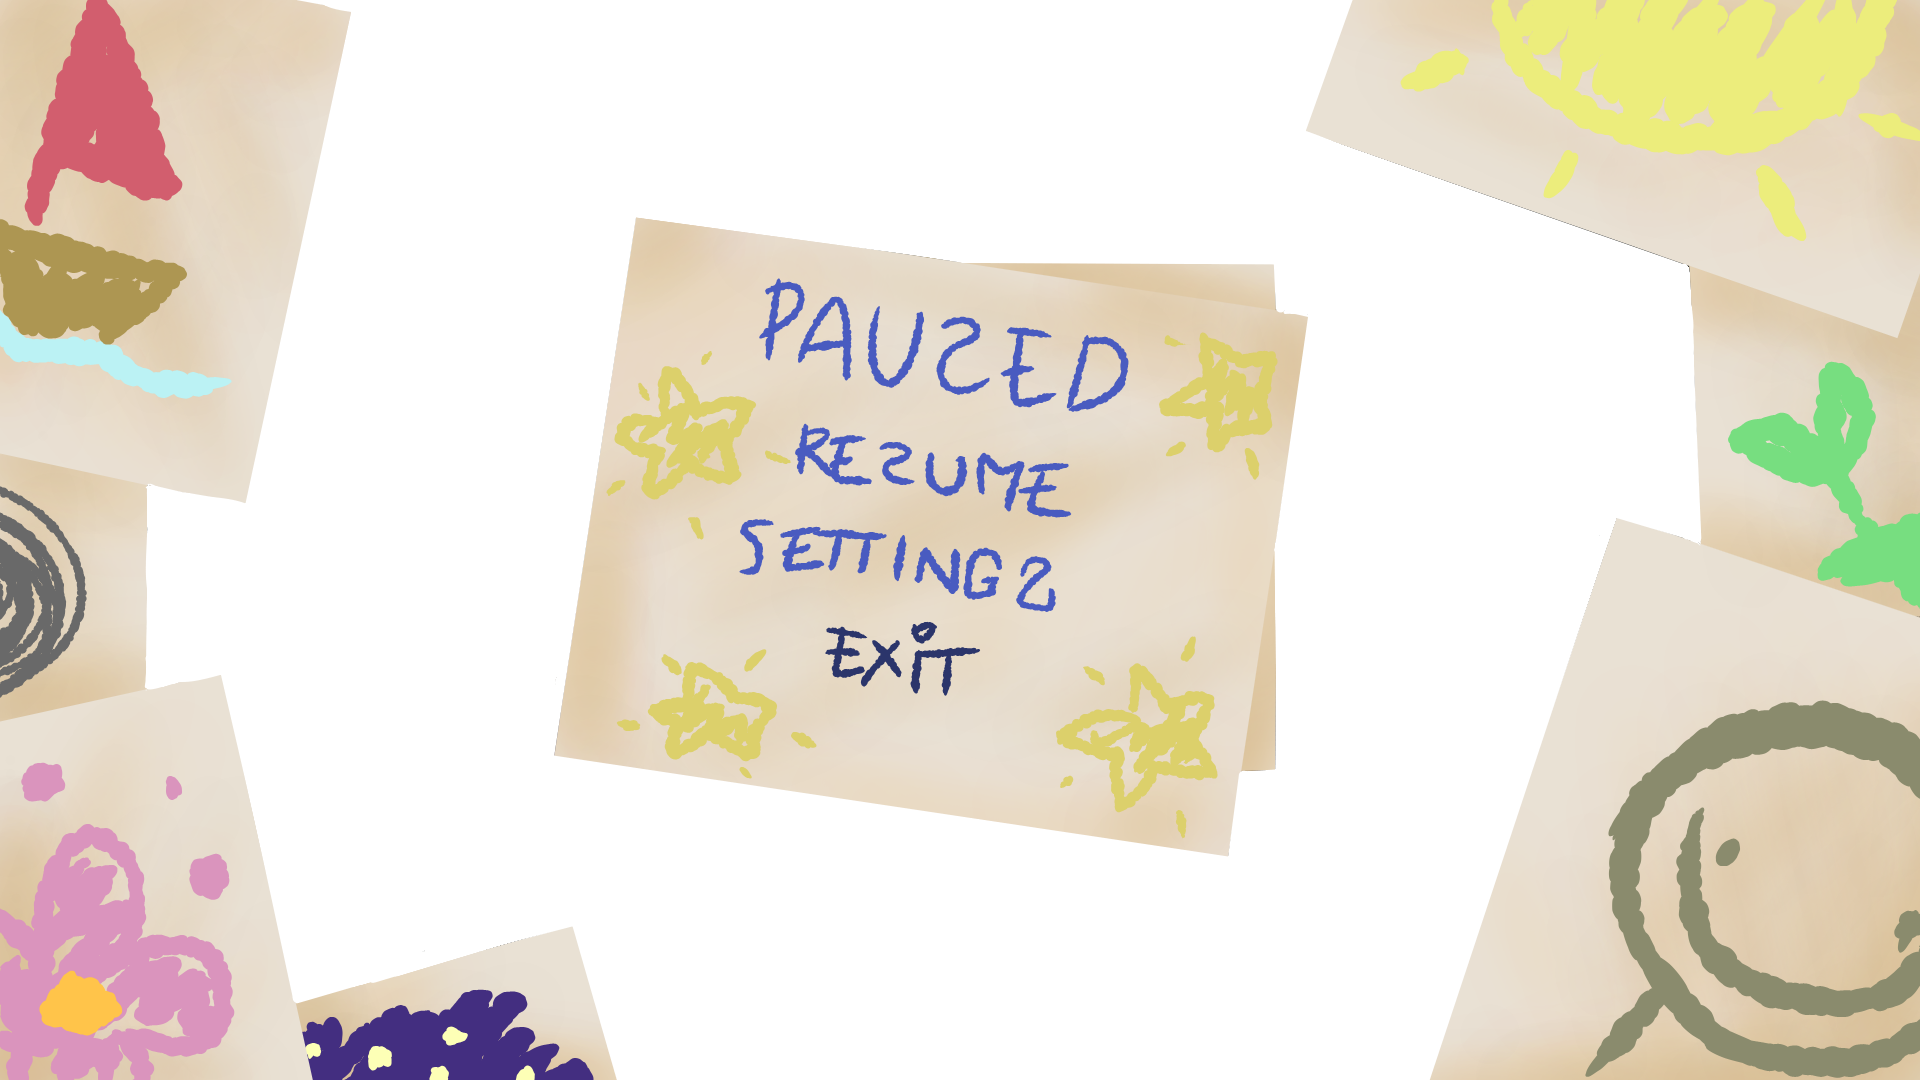 PAUSED
RESUME
SETTINGS
EXiT